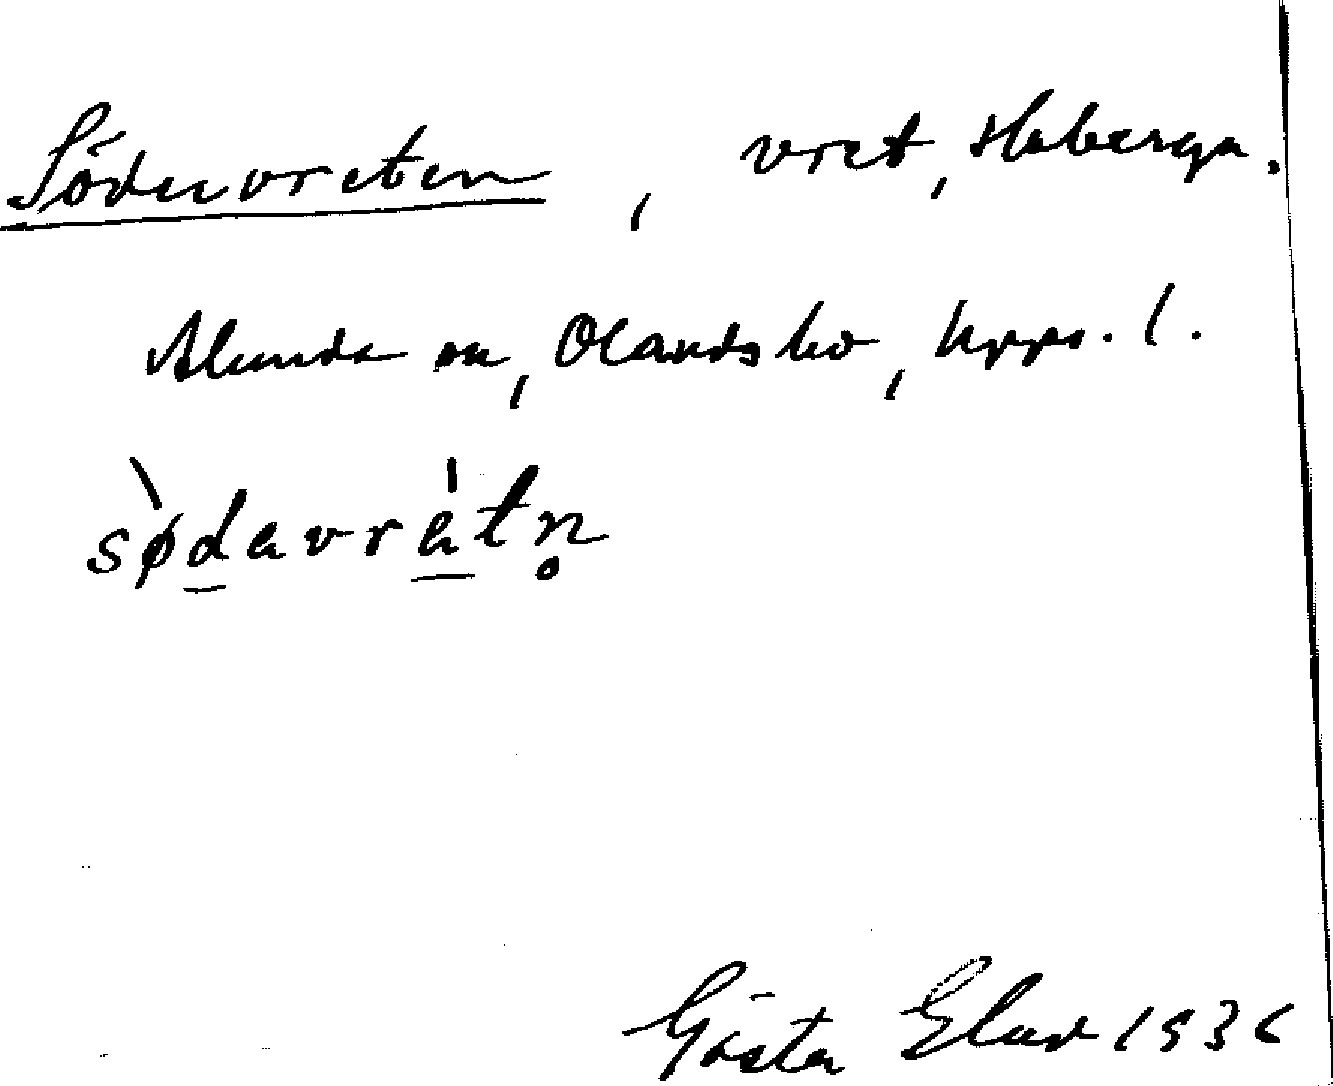 Södervreten, vret, Haberga.
Alunda sn, Olands hd, Upps. l.
sødavrètn̥
Gösta Elav 1936